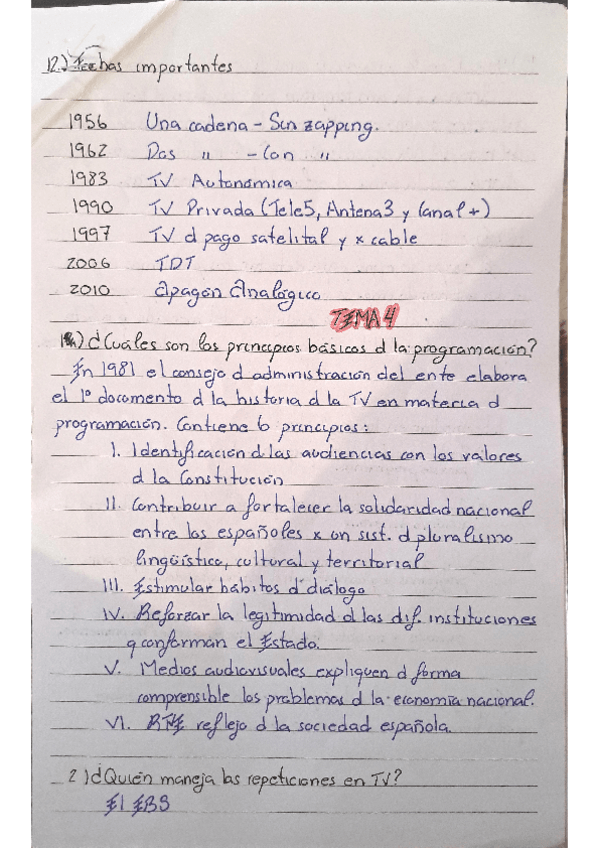 12.) Fechas importantes
1956 Una cadena - Sin zapping.
1962 Dos " - Con "
1983 TV Autonómica
1990 TV Privada (Tele5, Antena3 y Canal+)
1997 TV d pago satelital y x cable
2006 TDT
2010 Apagón Analógico
TEMA 4
1) ¿Cuáles son los principios básicos d la programación?
En 1981 el consejo d administración del ente elabora
el 1º documento d la historia d la TV en materia d
programación. Contiene 6 principios:
I. Identificación d las audiencias con los valores
d la Constitución
II. Contribuir a fortalecer la solidaridad nacional
entre los españoles x un sist. d pluralismo
lingüístico, cultural y territorial
III. Estimular hábitos d diálogo
IV. Reforzar la legitimidad d las dif. instituciones
q conforman el Estado.
V. Medios audiovisuales expliquen d forma
comprensible los problemas d la economía nacional.
VI. RTVE reflejo d la sociedad española.
2) ¿Quién maneja las repeticiones en TV?
El EBS